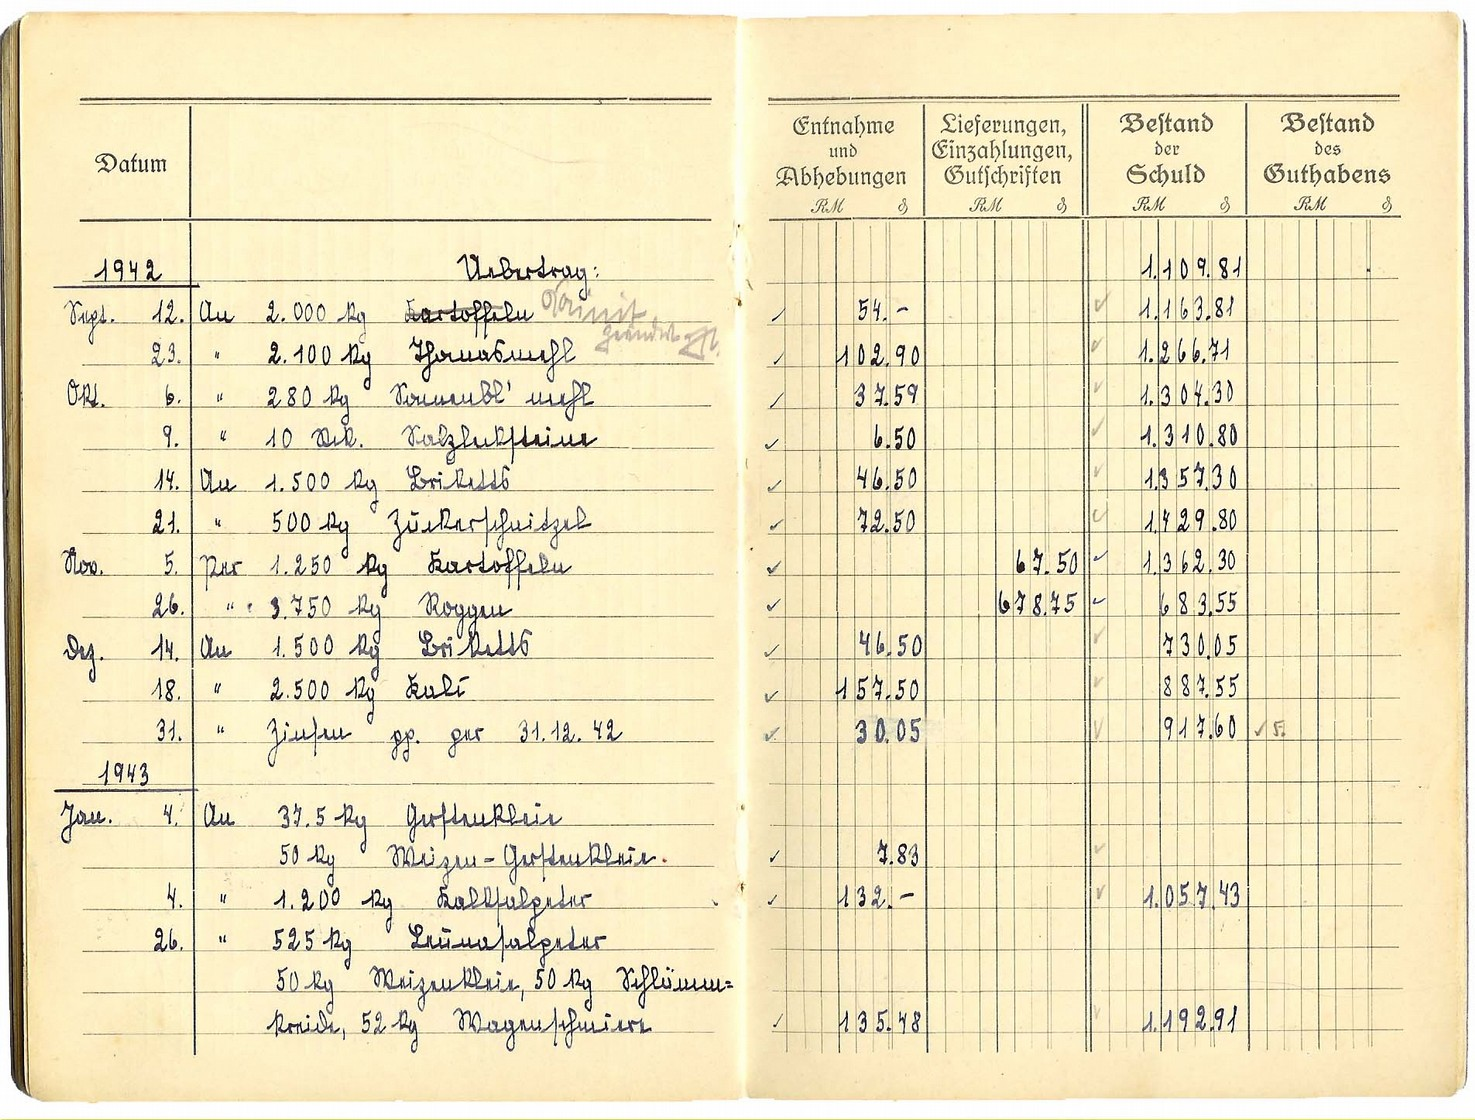 Datum
Entnahme und Abhebungen RM ₰
Lieferungen, Einzahlungen, Gutschriften RM ₰
Bestand der Schuld RM ₰
Bestand des Guthabens RM ₰
1942 Uebertrag: 1.109.81
Sept. 12. An 2.000 kg Kartoffeln Kainit 54.- 1.163.81
geändert
23. " 2.100 kg Thomasmehl 102.90 1.266.71
Okt. 6. " 280 kg Sonnenbl' mehl 37.59 1.304.30
9. " 10 Stck. Salzlecksteine 6.50 1.310.80
14. An 1.500 kg Briketts 46.50 1.357.30
21. " 500 kg Zuckerschnitzel 72.50 1.429.80
Nov. 5. Per 1.250 kg Kartoffeln 67.50 1.362.30
26. " 3.750 kg Roggen 678.75 683.55
Dez. 14. An 1.500 kg Briketts 46.50 730.05
18. " 2.500 kg Kali 157.50 887.55
31. " Zinsen pp. per 31.12.42 30.05 917.60
1943
Jan. 4. An 37.5 kg Gerstenkleie
50 kg Weizen-Gerstenkleie. 7.83
4. " 1.200 kg Kalksalpeter 132.- 1.057.43
26. " 525 kg Leunasalpeter
50 kg Weizenkleie, 50 kg Schlämm=
kreide, 52 kg Wagenschmiere 135.48 1.192.91